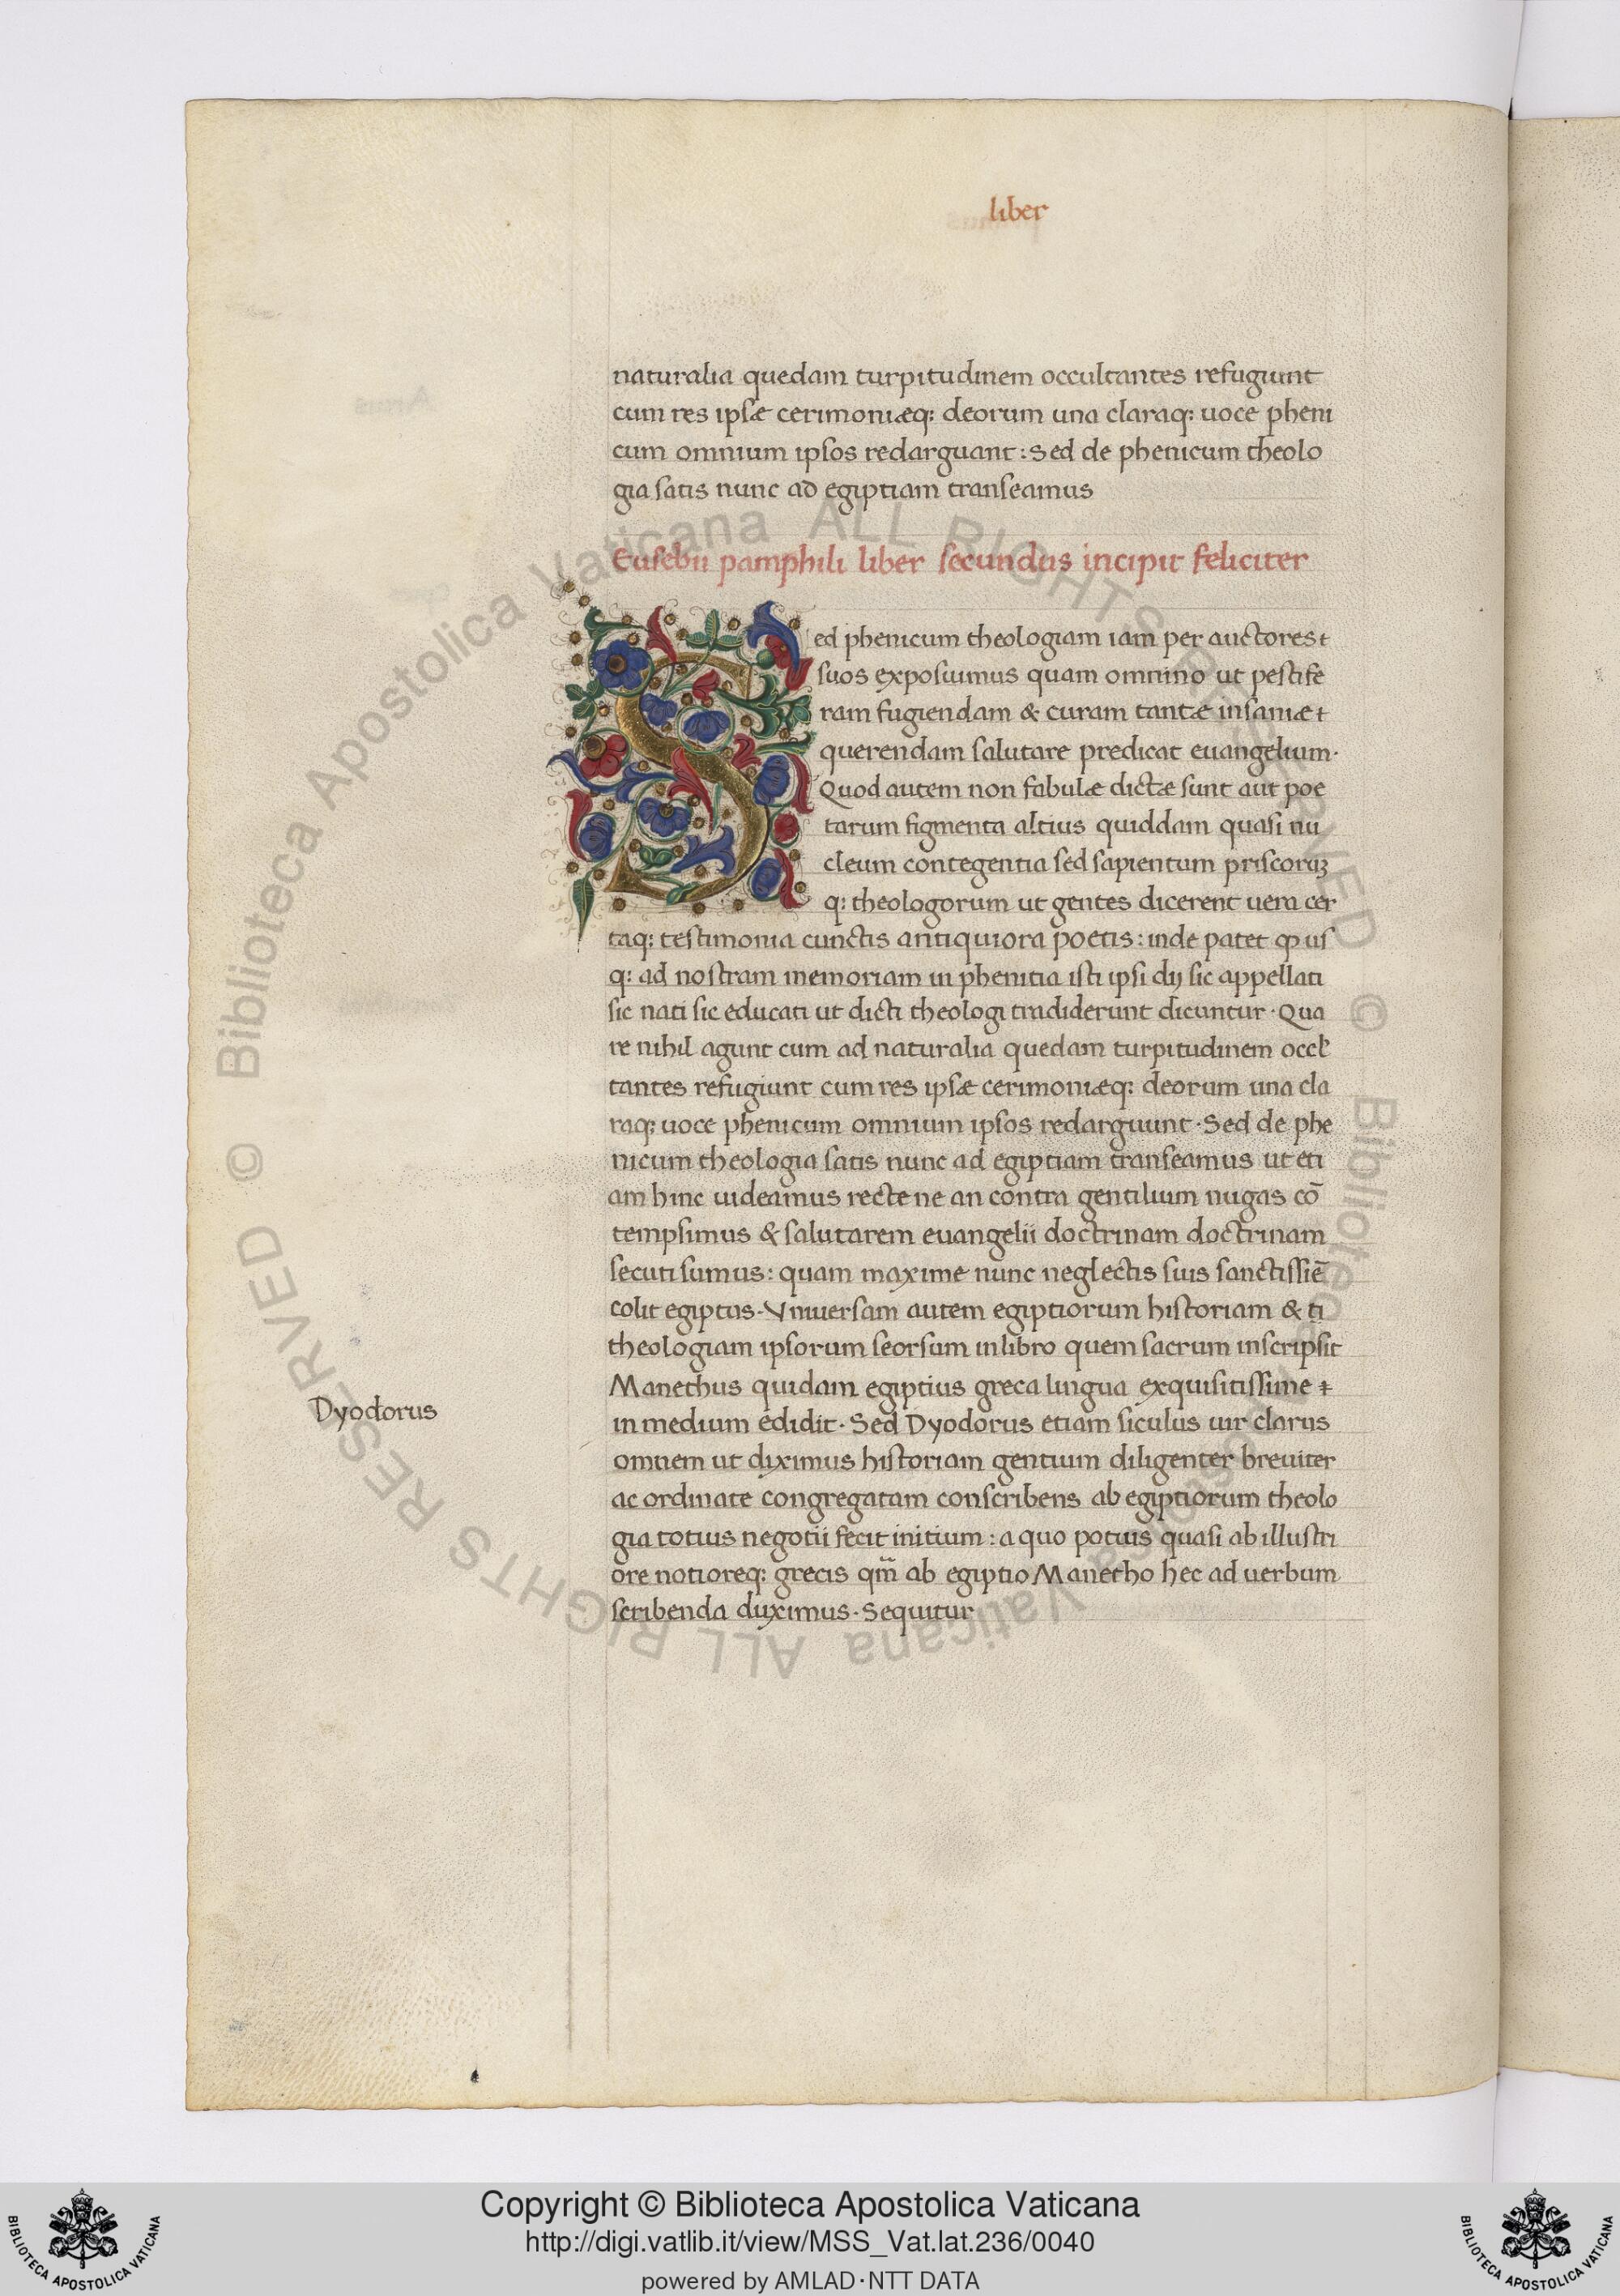 liber
naturalia quedam turpitudinem occultantes refugiunt
cum res ipsæ cerimoniæq: deorum una claraq: uoce pheni
cum omnium ipsos redarguant: Sed de phenicum theolo
gia satis nunc ad egiptiam transeamus
Eusebii pamphili liber secundus incipit feliciter
Sed phenicum theologiam iam per auctores
suos exposuimus quam omnino ut pestife
ram fugiendam & curam tantæ insaniæ
querendam salutare predicat euangelium·
Quod autem non fabulæ dictæ sunt aut poe
tarum figmenta altius quiddam quasi nu
cleum contegentia sed sapientum priscoruꝫ
q: theologorum ut gentes dicerent uera cer
taq: testimonia cunctis antiquiora poetis: inde patet ꝙ us
q: ad nostram memoriam in phenitia isti ipsi dij sic appellati
sic nati sic educati ut dicti theologi tradiderunt dicuntur· Qua
re nihil agunt cum ad naturalia quedam turpitudinem occl
tantes refugiunt cum res ipsæ cerimoniæq: deorum una cla
raq: uoce phenicum omnium ipsos redarguunt· Sed de phe
nicum theologia satis nunc ad egiptiam transeamus ut eti
am hinc uideamus recte ne an contra gentilium nugas cō
tempsimus & salutarem euangelii doctrinam doctrinam
secuti sumus: quam maxime nunc neglectis suis sanctissiē
colit egiptus· Vniuersam autem egiptiorum historiam & ti
theologiam ipsorum seorsum in libro quem sacrum inscripsit
Manethus quidam egiptius greca lingua exquisitissime
in medium edidit· Sed Dyodorus etiam siculus uir clarus
Dyodorus
omnem ut diximus historiam gentium diligenter breuiter
ac ordinate congregatam conscribens ab egiptiorum theolo
gia totius negotii fecit initium: a quo potius quasi ab illustri
ore notioreq: grecis qm̄ ab egiptio Manetho hec ad uerbum
scribenda duximus· Sequitur
© Biblioteca Apostolica Vaticana ALL RIGHTS RESERVED © Biblioteca Apostolica Vaticana ALL RIGHTS RESERVED
Copyright © Biblioteca Apostolica Vaticana
http://digi.vatlib.it/view/MSS_Vat.lat.236/0040
powered by AMLAD·NTT DATA
BIBLIOTECA APOSTOLICA VATICANA
BIBLIOTECA APOSTOLICA VATICANA